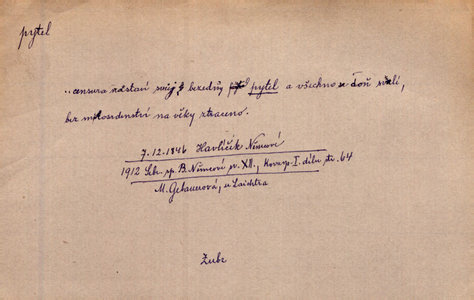 pytel
censura nastaví svůj bezedný pytel a všechno doň
bez milosrdenství na věky ztraceno.
7.12.1846 Havlíček Němcové
1912 Sebr. sp. B. Němcové sv. XII., Koresp. I. dílu, str. 64
M. Gebauerová, u Laichtra
Zube